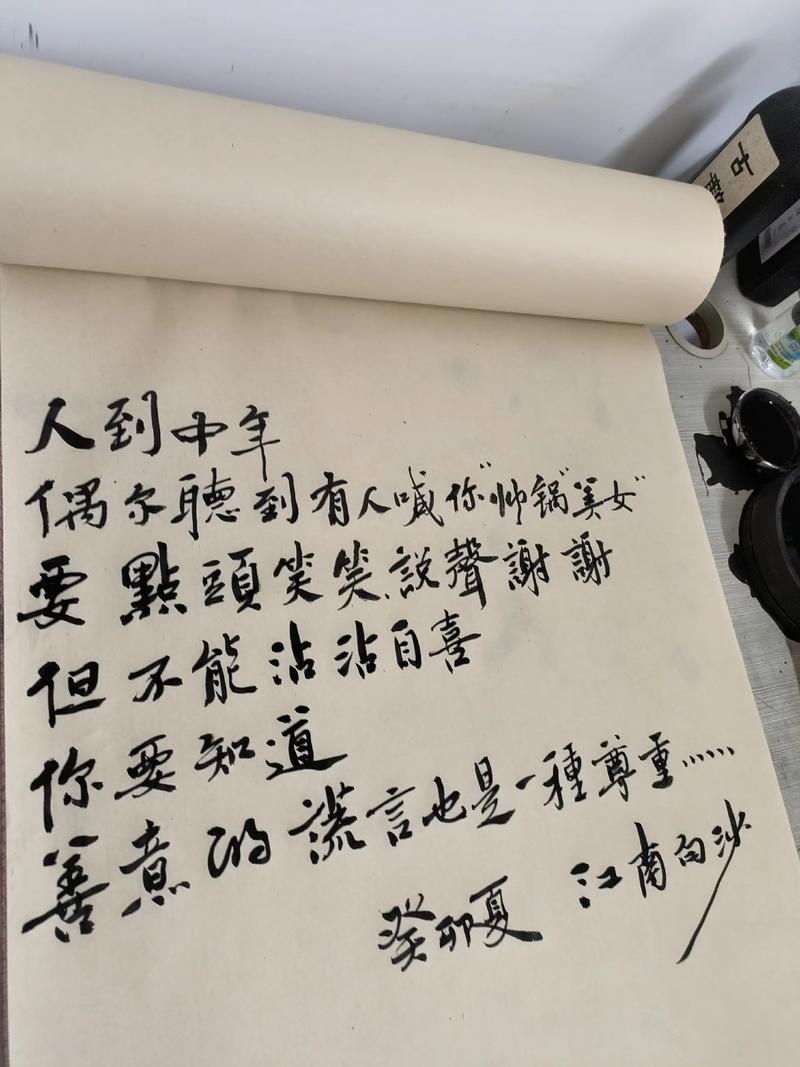 人到中年
偶尔聽到有人喊你"帅锅""美女"
要點頭笑笑說聲謝謝
但不能沾沾自喜
你要知道
善意的謊言也是一種尊重……
癸卯夏 江南白沙
古